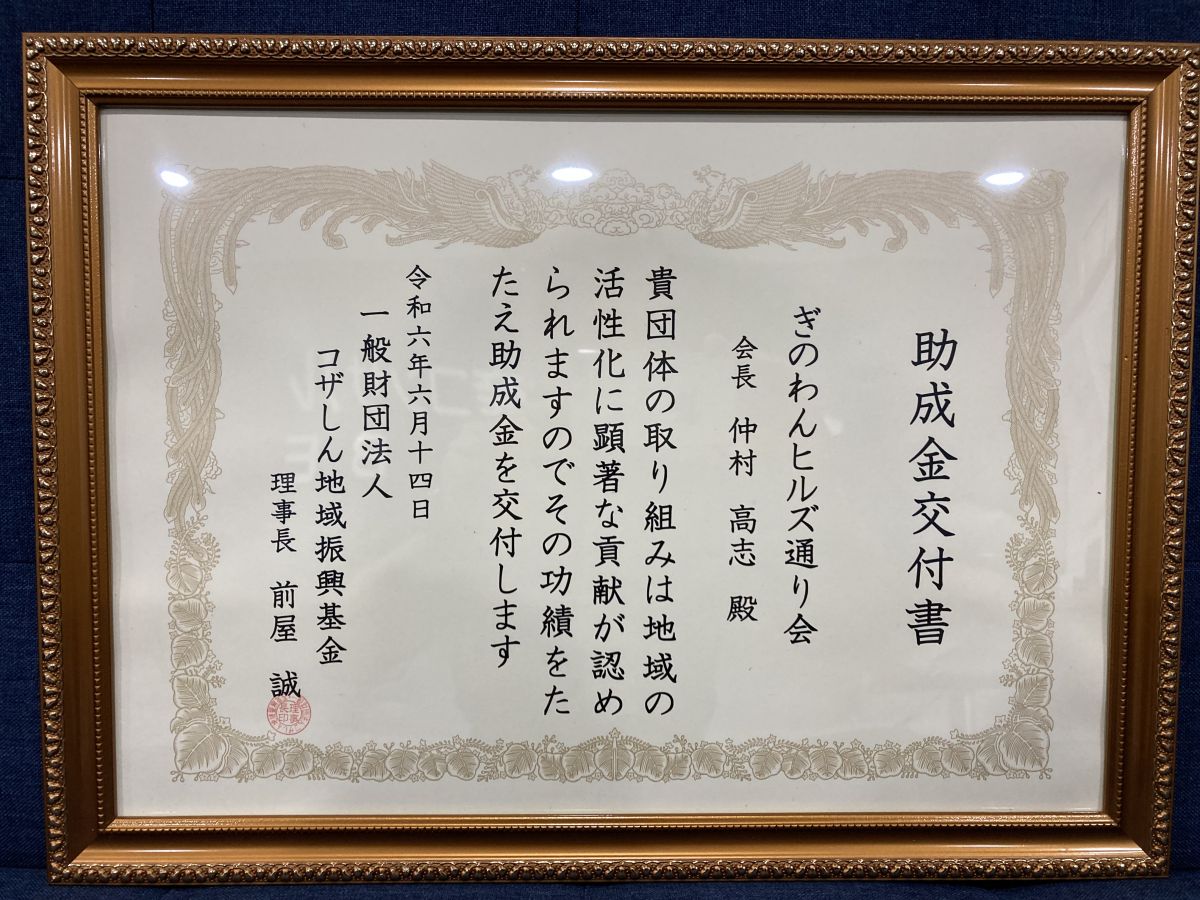 助成金交付書
ぎのわんヒルズ通り会
会長 仲村 高志 殿
貴団体の取り組みは地域の
活性化に顕著な貢献が認め
られますのでその功績をた
たえ助成金を交付します
令和六年六月十四日
一般財団法人
コザしん地域振興基金
理事長 前屋 誠